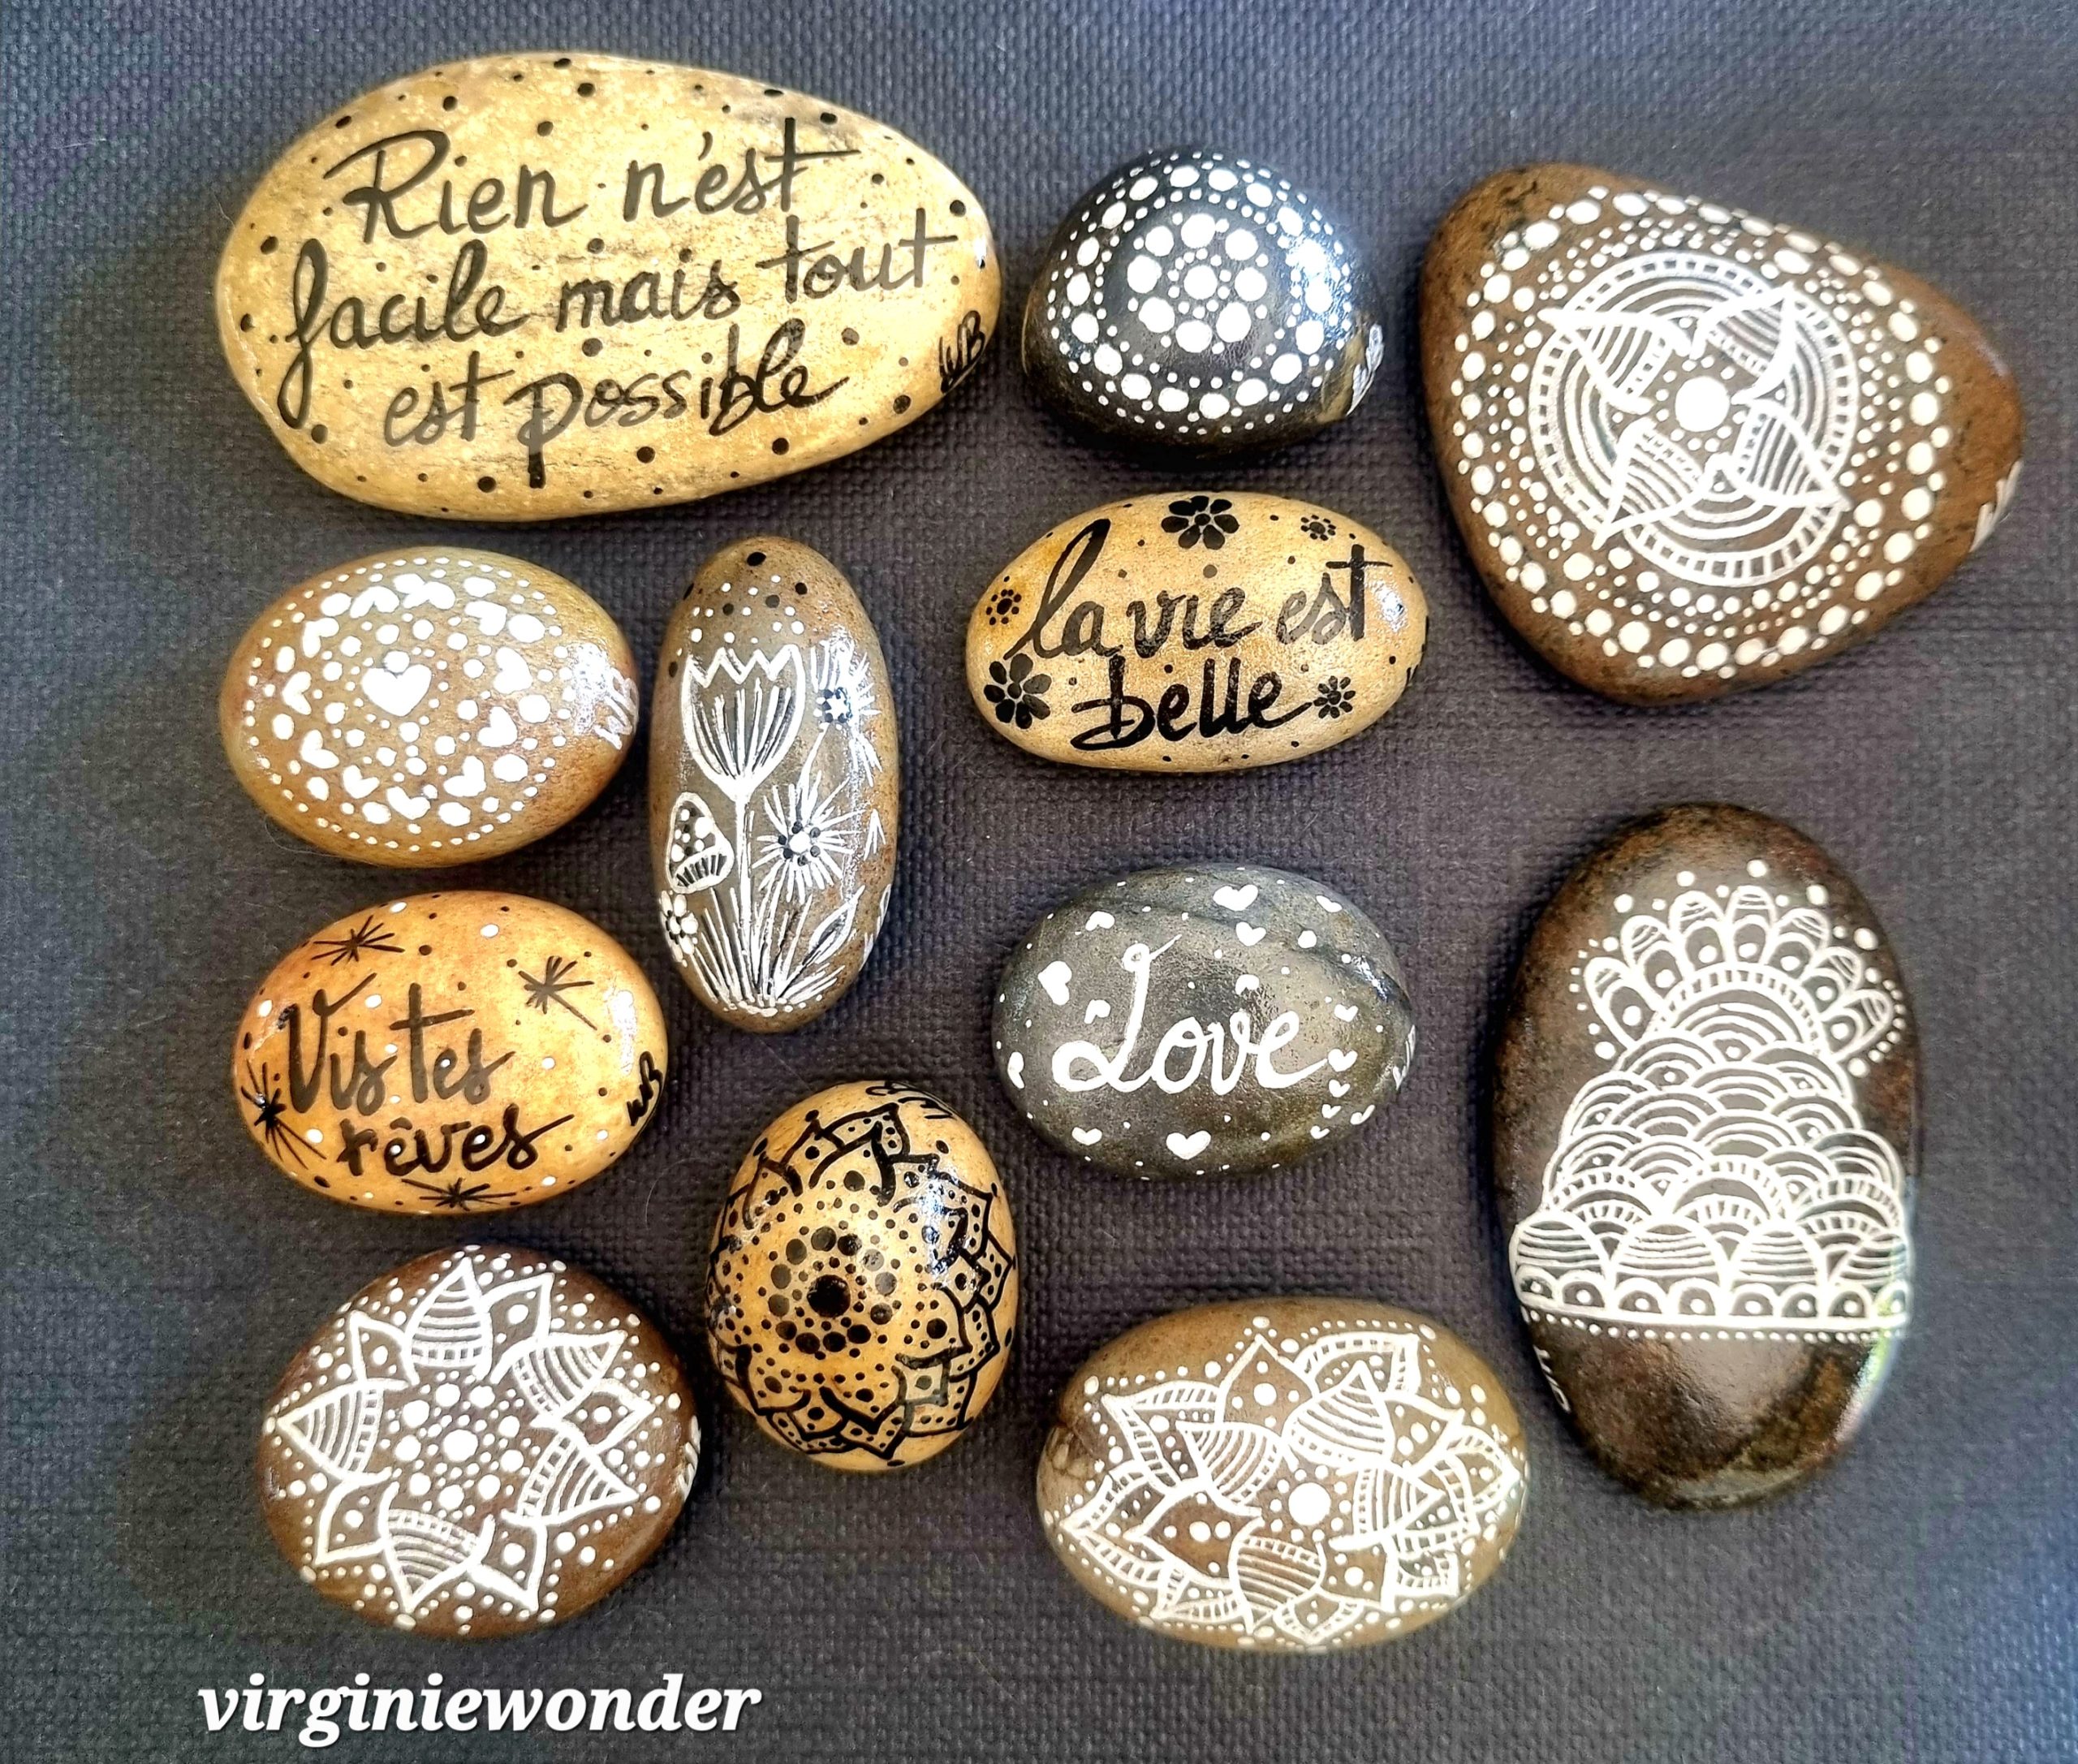 Rien n'est
facile mais tout
est possible
WB
la vie est
belle
Vis tes
rêves
WB
Love
virginiewonder